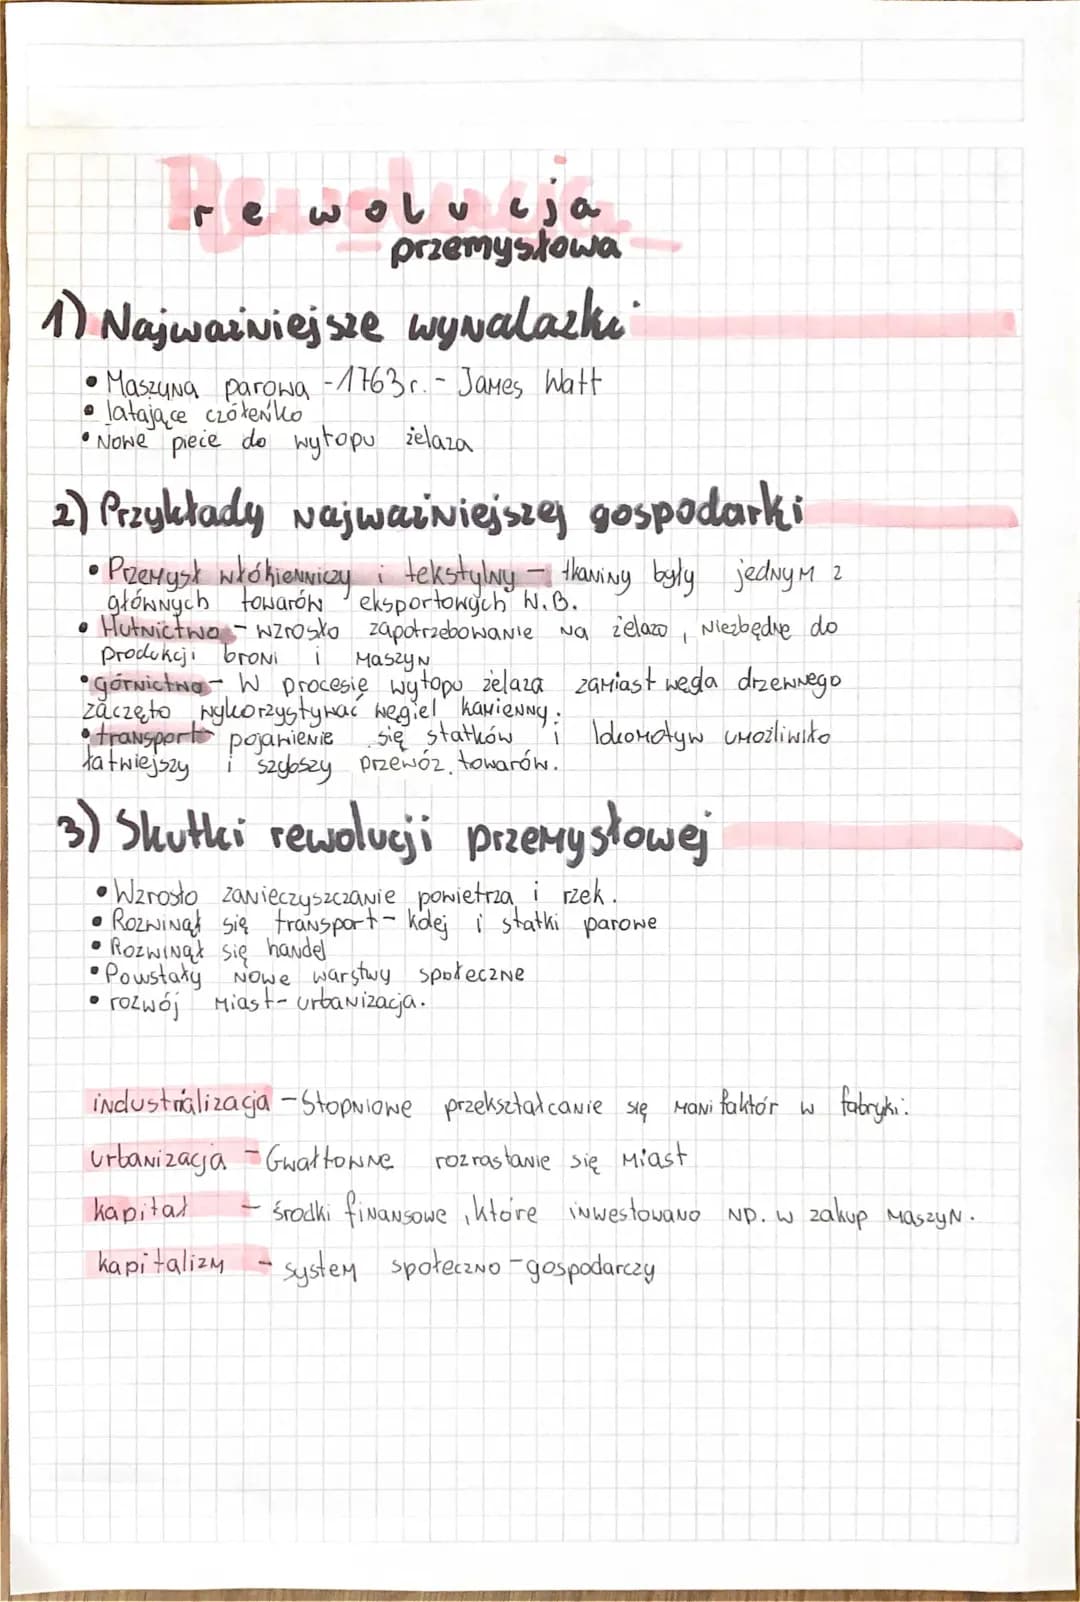 rewolucja
przemysłowa
1) Najważniejsze wynalazki
• Maszyna parowa - 1763r. - James Watt
• latające czółenko
• Nowe piece do wytopu żelaza
2) Przykłady najważniejszej gospodarki
• Przemysł włókienniczy i tekstylny - tkaniny były jednym z
głównych towarów eksportowych W.B.
• Hutnictwo - wzrosło zapotrzebowanie na żelazo, niezbędne do
produkcji broni i maszyn
• górnictwo - W procesie wytopu żelaza zamiast węgla drzewnego
zaczęto wykorzystywać węgiel kamienny.
• transport - pojawienie się statków i lokomotyw umożliwiło
łatwiejszy i szybszy przewóz towarów.
3) Skutki rewolucji przemysłowej
• Wzrosło zanieczyszczanie powietrza i rzek.
• Rozwinął się transport - kolej i statki parowe
• Rozwinął się handel
• Powstały nowe warstwy społeczne
• rozwój miast - urbanizacja.
industrializacja - Stopniowe przekształcanie się manifaktór w fabryki.
urbanizacja - Gwałtowne rozrastanie się miast
kapitał - środki finansowe, które inwestowano np. w zakup maszyn.
kapitalizm - system społeczno-gospodarczy